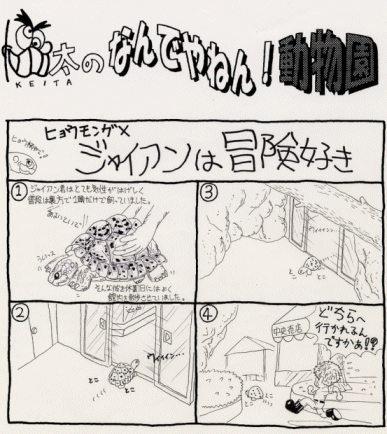 太の なんでやねん! 動物園
KEITA
ヒョウモンガメ
ジャイアンは冒険好き
①
ジャイアン君はとても気性がはげしく
普段は裏方で1頭だけで飼っていました。
そんな彼を休館日にはよく
館内を散歩させていました。
②
ウィィィン…
とこ
とこ
③
ウィィィン…
とこ
とこ
④
中央売店
どちらへ
行かれるんですかぁ!?
とこ
とこ